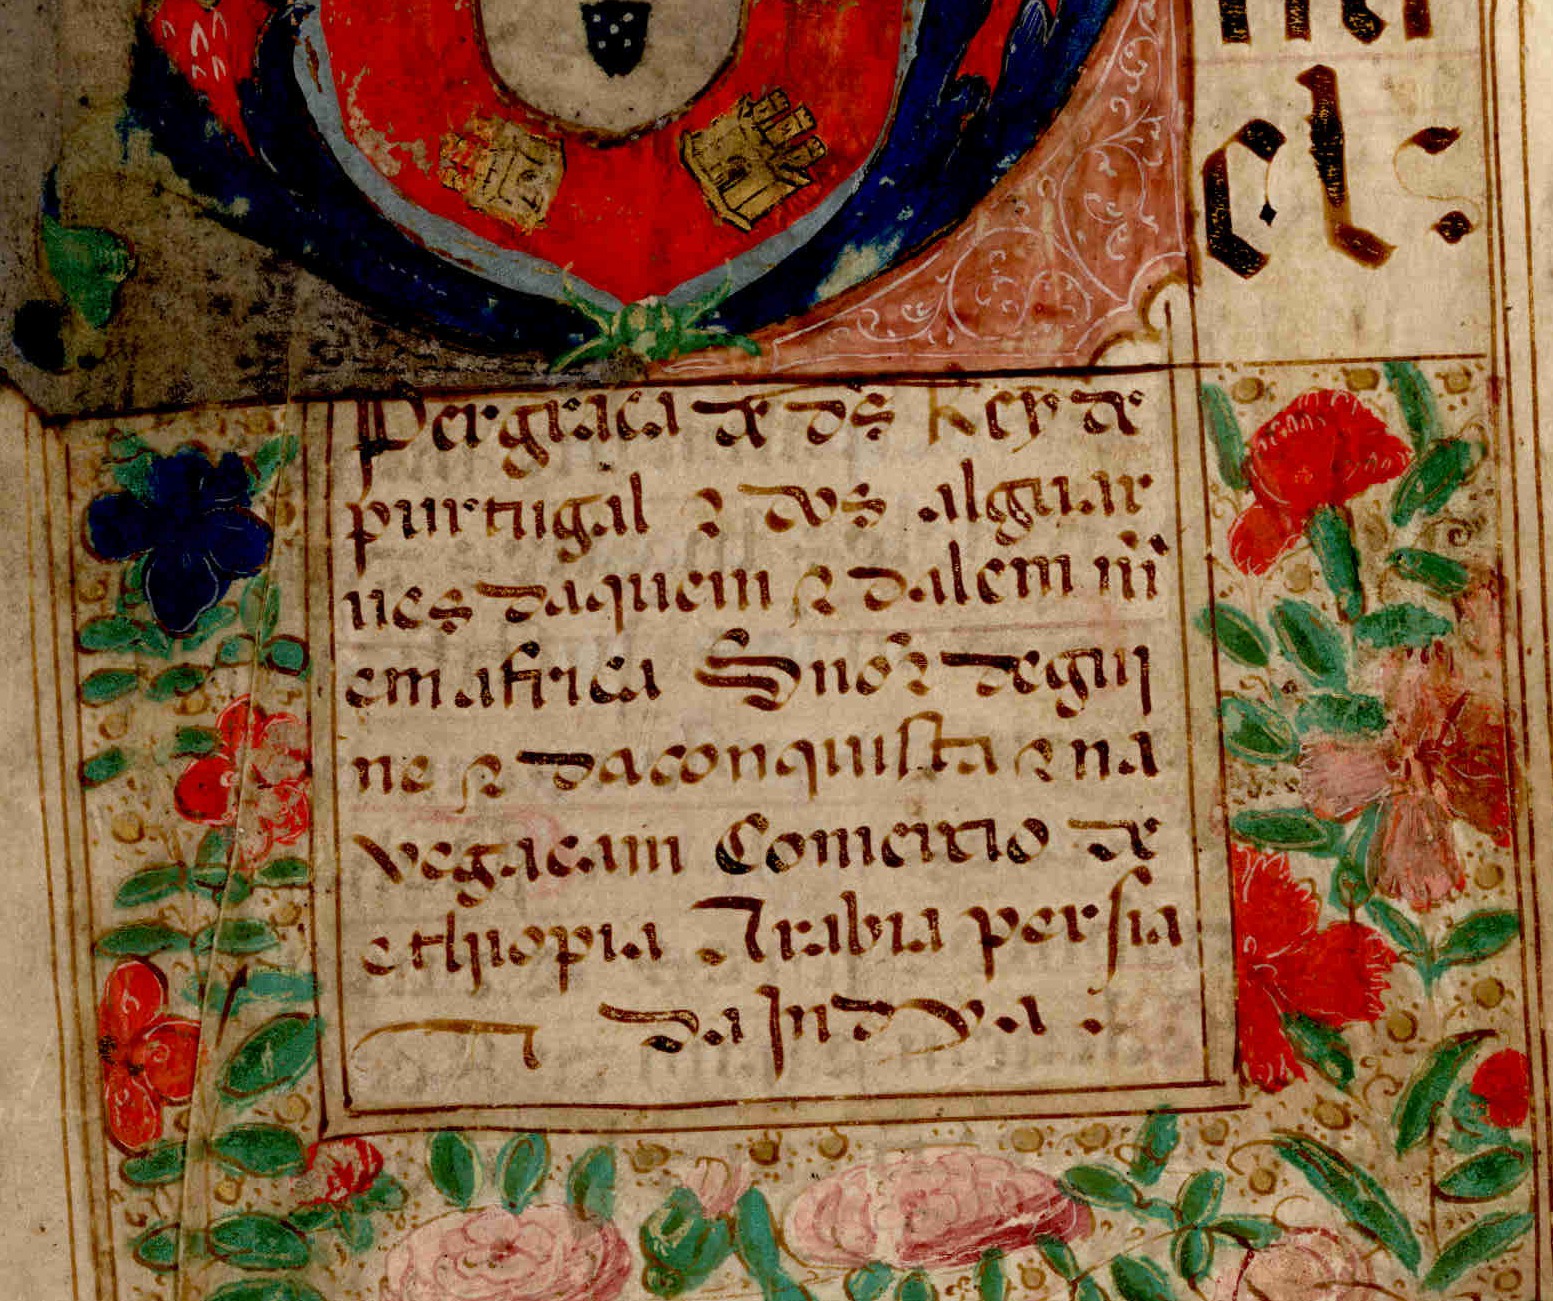 els
Per graça de ds Rey de
purtugal e dos alguar
ues daquem e dalem mi
em africa Snõr de guj
ne e da conquista e na
vegaçam Comercio de
ethiopia Arabia persia
da Indya.